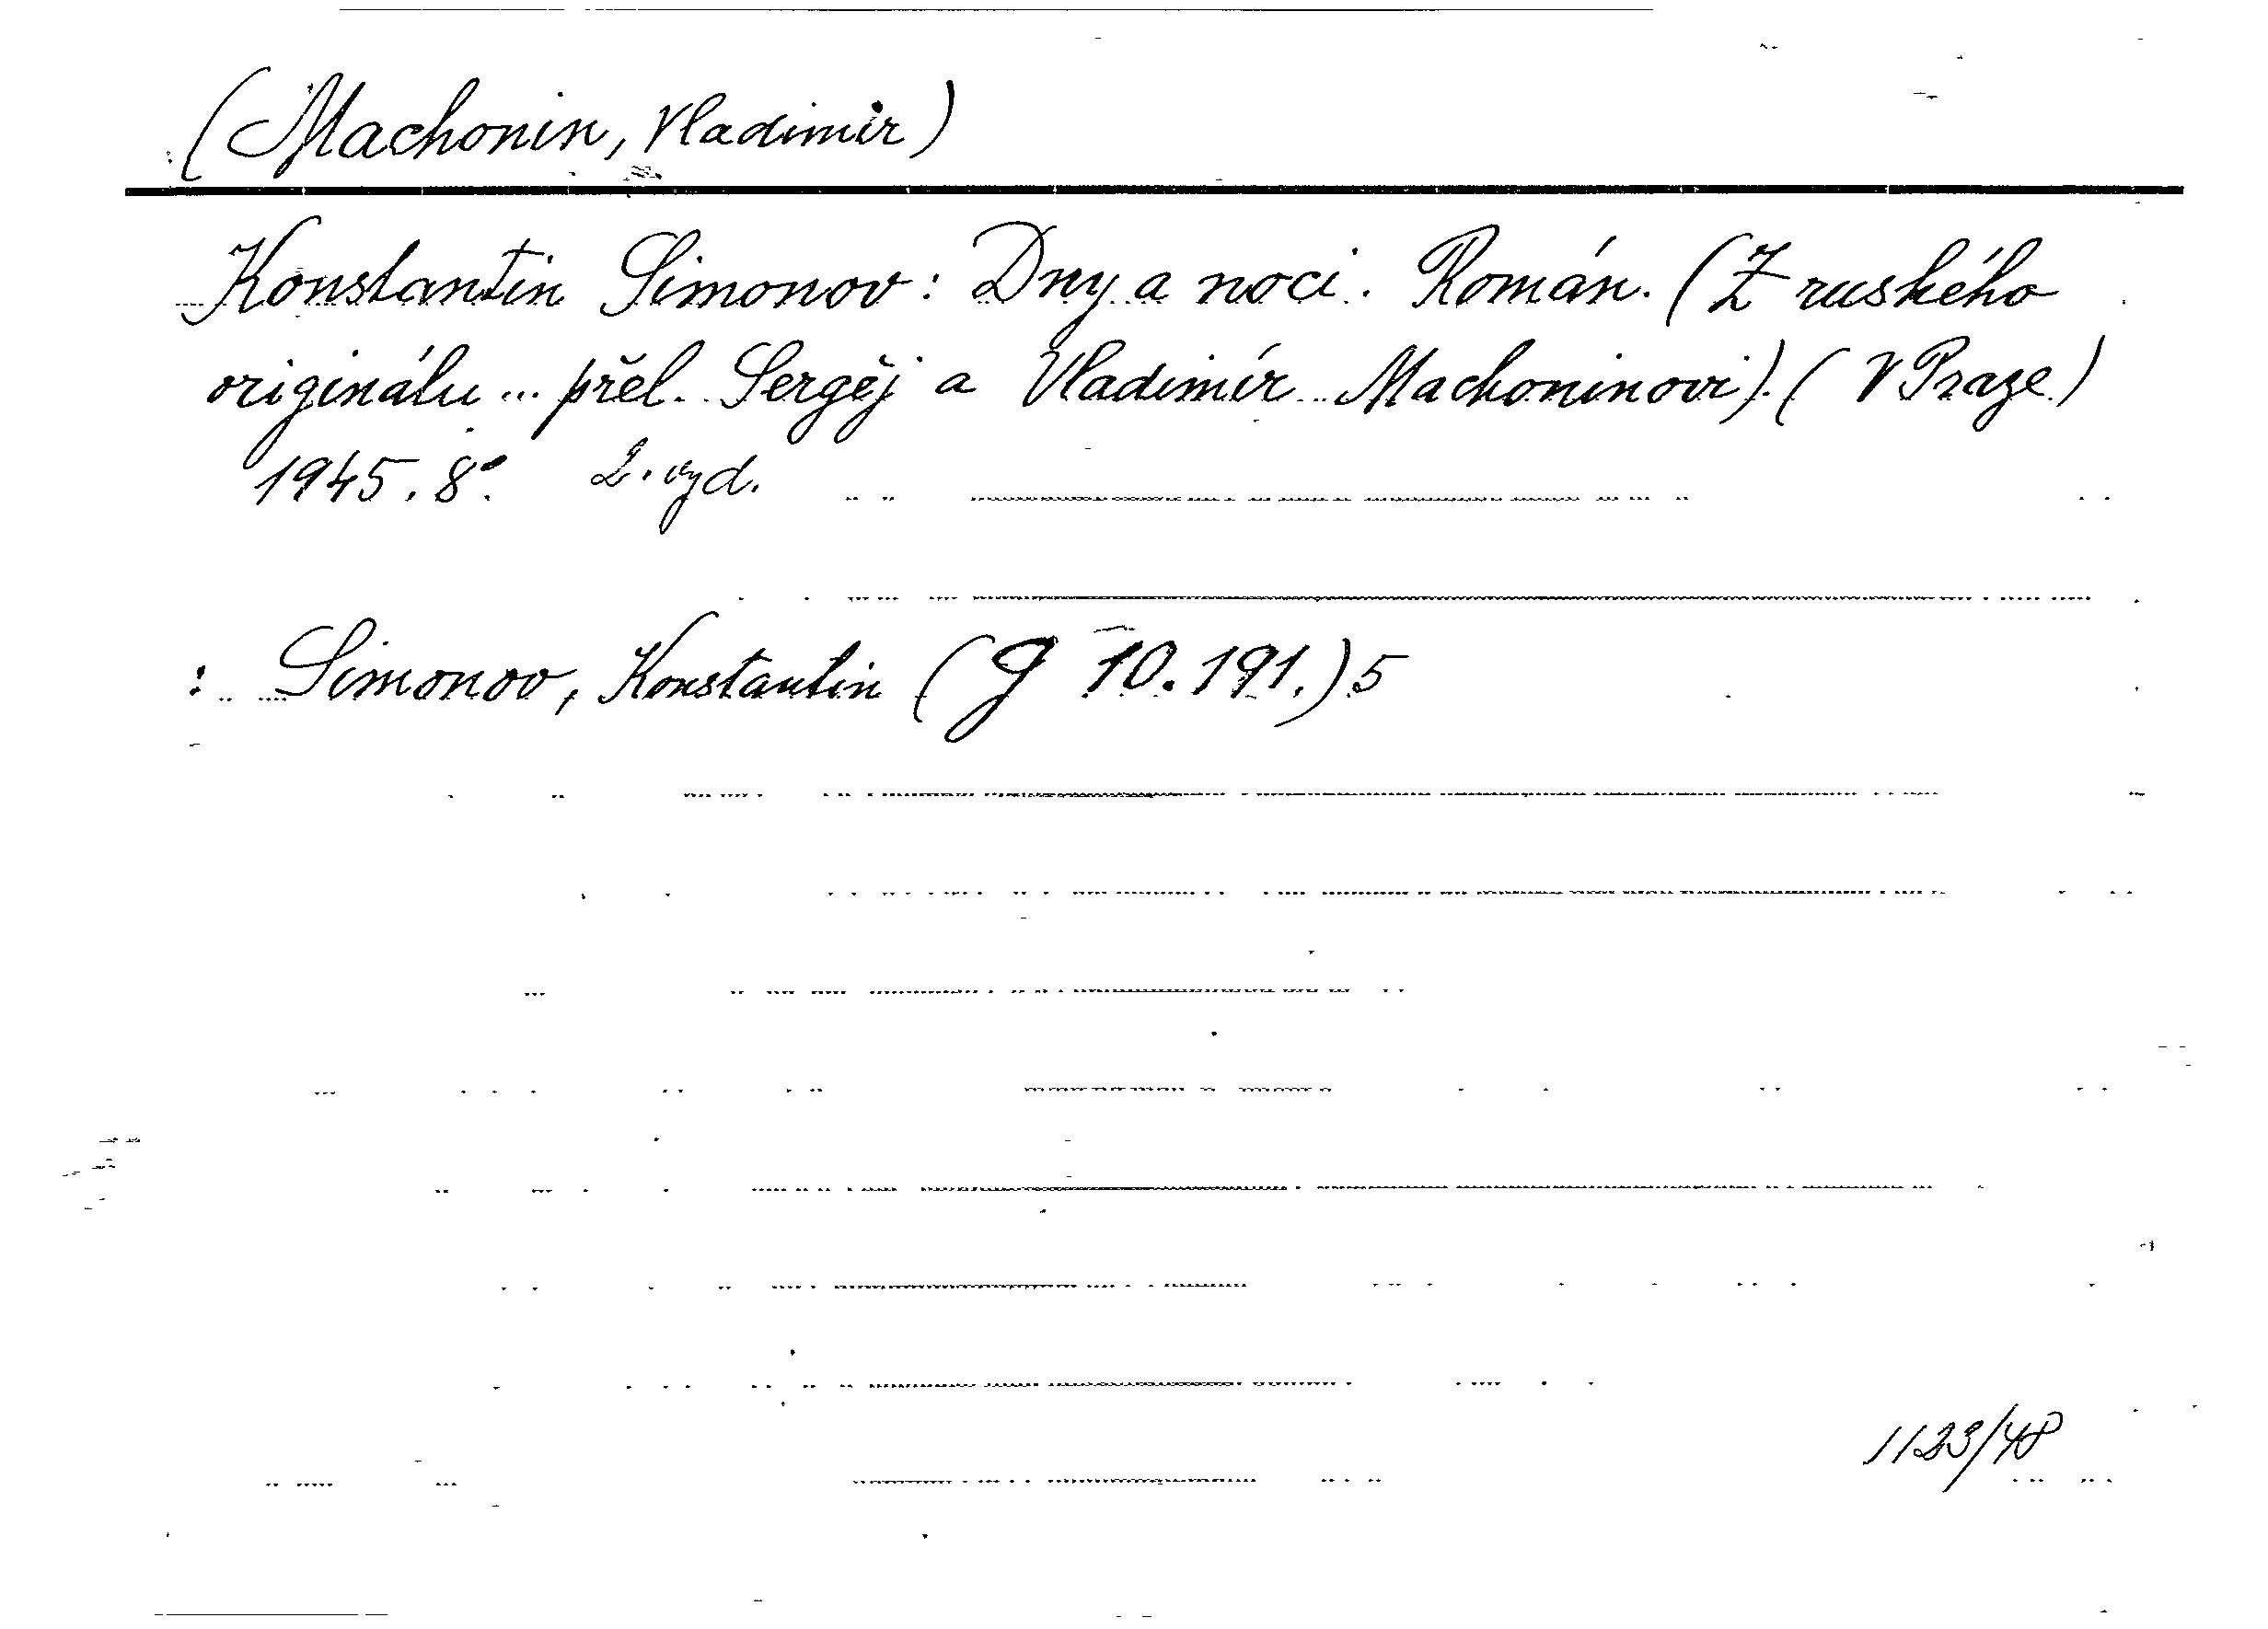 (Machonin, Vladimir)
Konstantin Simonov: Dny a noci. Román. (Z ruského
originálu... přel. Sergěj a Vladimír Machoninovi). (V Praze)
1945. 8°. 2. vyd.
: Simonov, Konstantin (G 10.191.) 5
1123/48